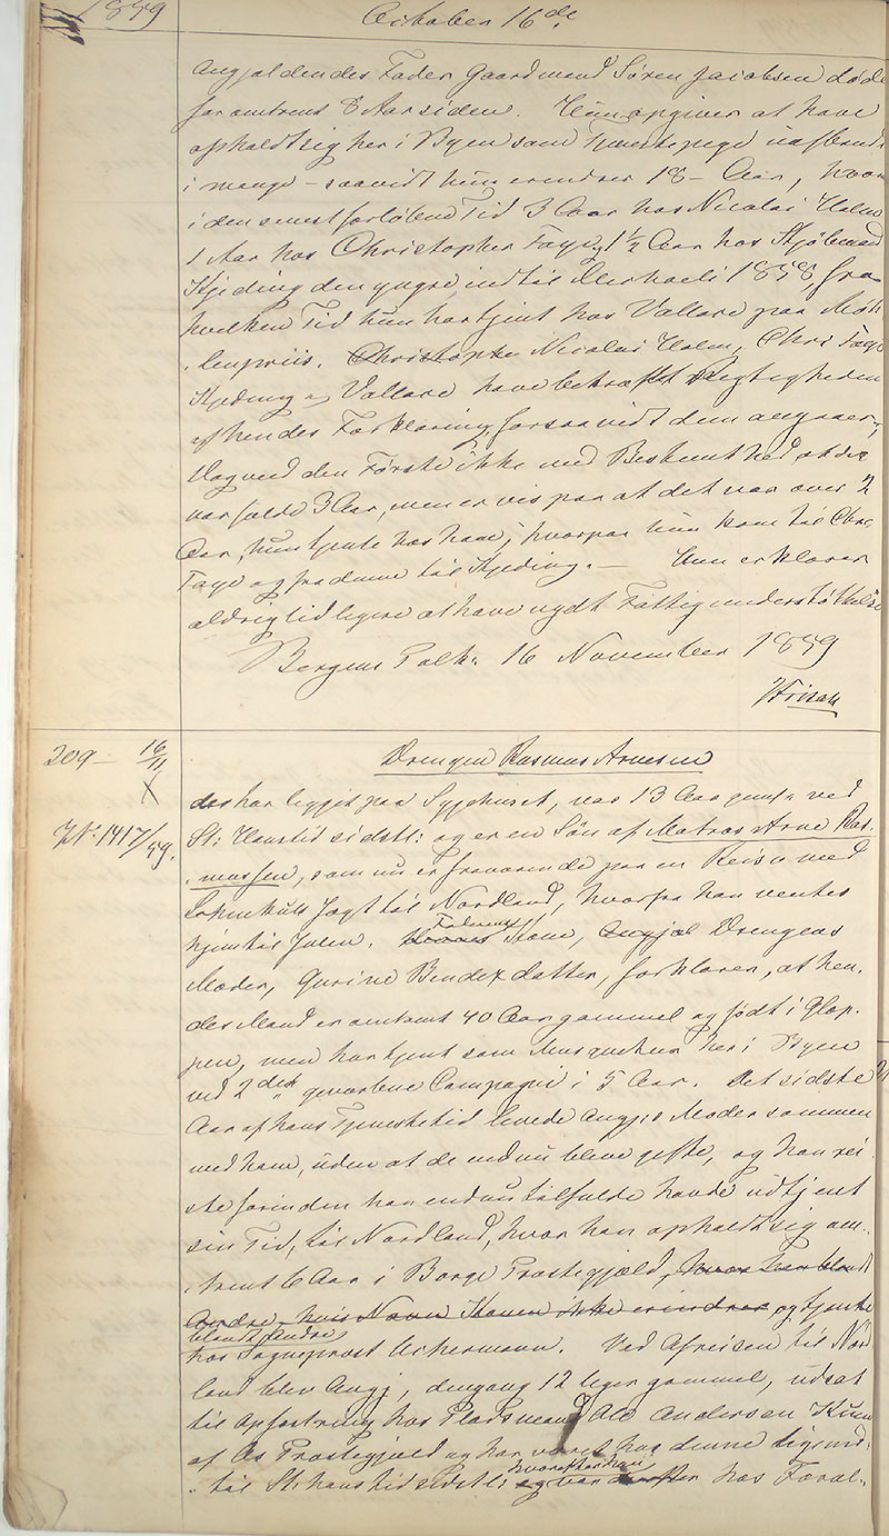 1859
October 16de
Angjældendes Fader Gaardmand Sören Jacobsen døde
for omtrent 8 Aar siden. Hun opgiver at have
opholdt sig her i Byen som Tjenestepige uafbrudt
i mange - saavidt hun erindrer 18 - Aar, hvoraf
i den senest forløbne Tid 3 Aar hos Nicolai Holm
1 Aar hos Christopher Faye, 1½ Aar hos Kjøbmand
Kjeding den yngre indtil Michaeli 1858, fra
hvilken Tid hun har tjent hos Vallare paa Møh
lenpriis. Christophe Nicolai Holm, Chr: Faye
Kjeding og Vallare have bekræftet Rigtigheden
af hendes Forklaring, forsaavidt dem angaaer,
dog veed den Første ikke med Bestemthed, at det
var fulde 3 Aar, men er vis paa at det var over 2
Aar, hun tjente hos ham, hvorpaa hun kom til Chr:
Faye og fra denne til Kjeding. — Hun erklærer
aldrig tidligere at have nydt Fattigunderstøttelse
Bergens Politik. 16 November 1859
Frisak
209 — 16/11
X
Drengen Rasmus Arnesen
No 1417/59.
der har ligget paa Sygehuset, var 13 Aar gml. ved
St: Hanstid sidstl: og er en Søn af Matros Arne Ras-
mussen, som nu er fraværende paa en Reise med
Jagt til Nordland, hvorfra han ventes
hjem til Julen. Hannes Faderens Kone, Angjæl Drengens
Moder, Gurine Bendixdatter, forklarer, at hen-
des Mand er omtrent 40 Aar gammel og født i Glop-
pen, men har tjent som Musqueteer her i Byen
ved 2det gevorbne Compagni i 5 Aar. Det sidste
Aar af hans Tjenestetid levede Angjs Moder sammen
med ham, uden at de endnu bleve gifte, og han rei-
ste forinden han endnu tilfulde havde udtjent
sin Tid, til Nordland, hvor han opholdt sig om-
trent 6 Aar i Borge Præstegjæld, hvor han blandt
Andre, hvis Navn Konen ikke erindrer og tjente
blandt Andre
hos Sogneprest Achermann. Ved Afreisen til Nord
land blev Angj, dengang 12 Uger gammel, udsat
til Opfostring hos Pladsmand Ole Andersen
af Os Præstegjeld og har været hos denne ligeind-
til St: hanstid sidstl: og var derefter hvorefter han hos Foræl-